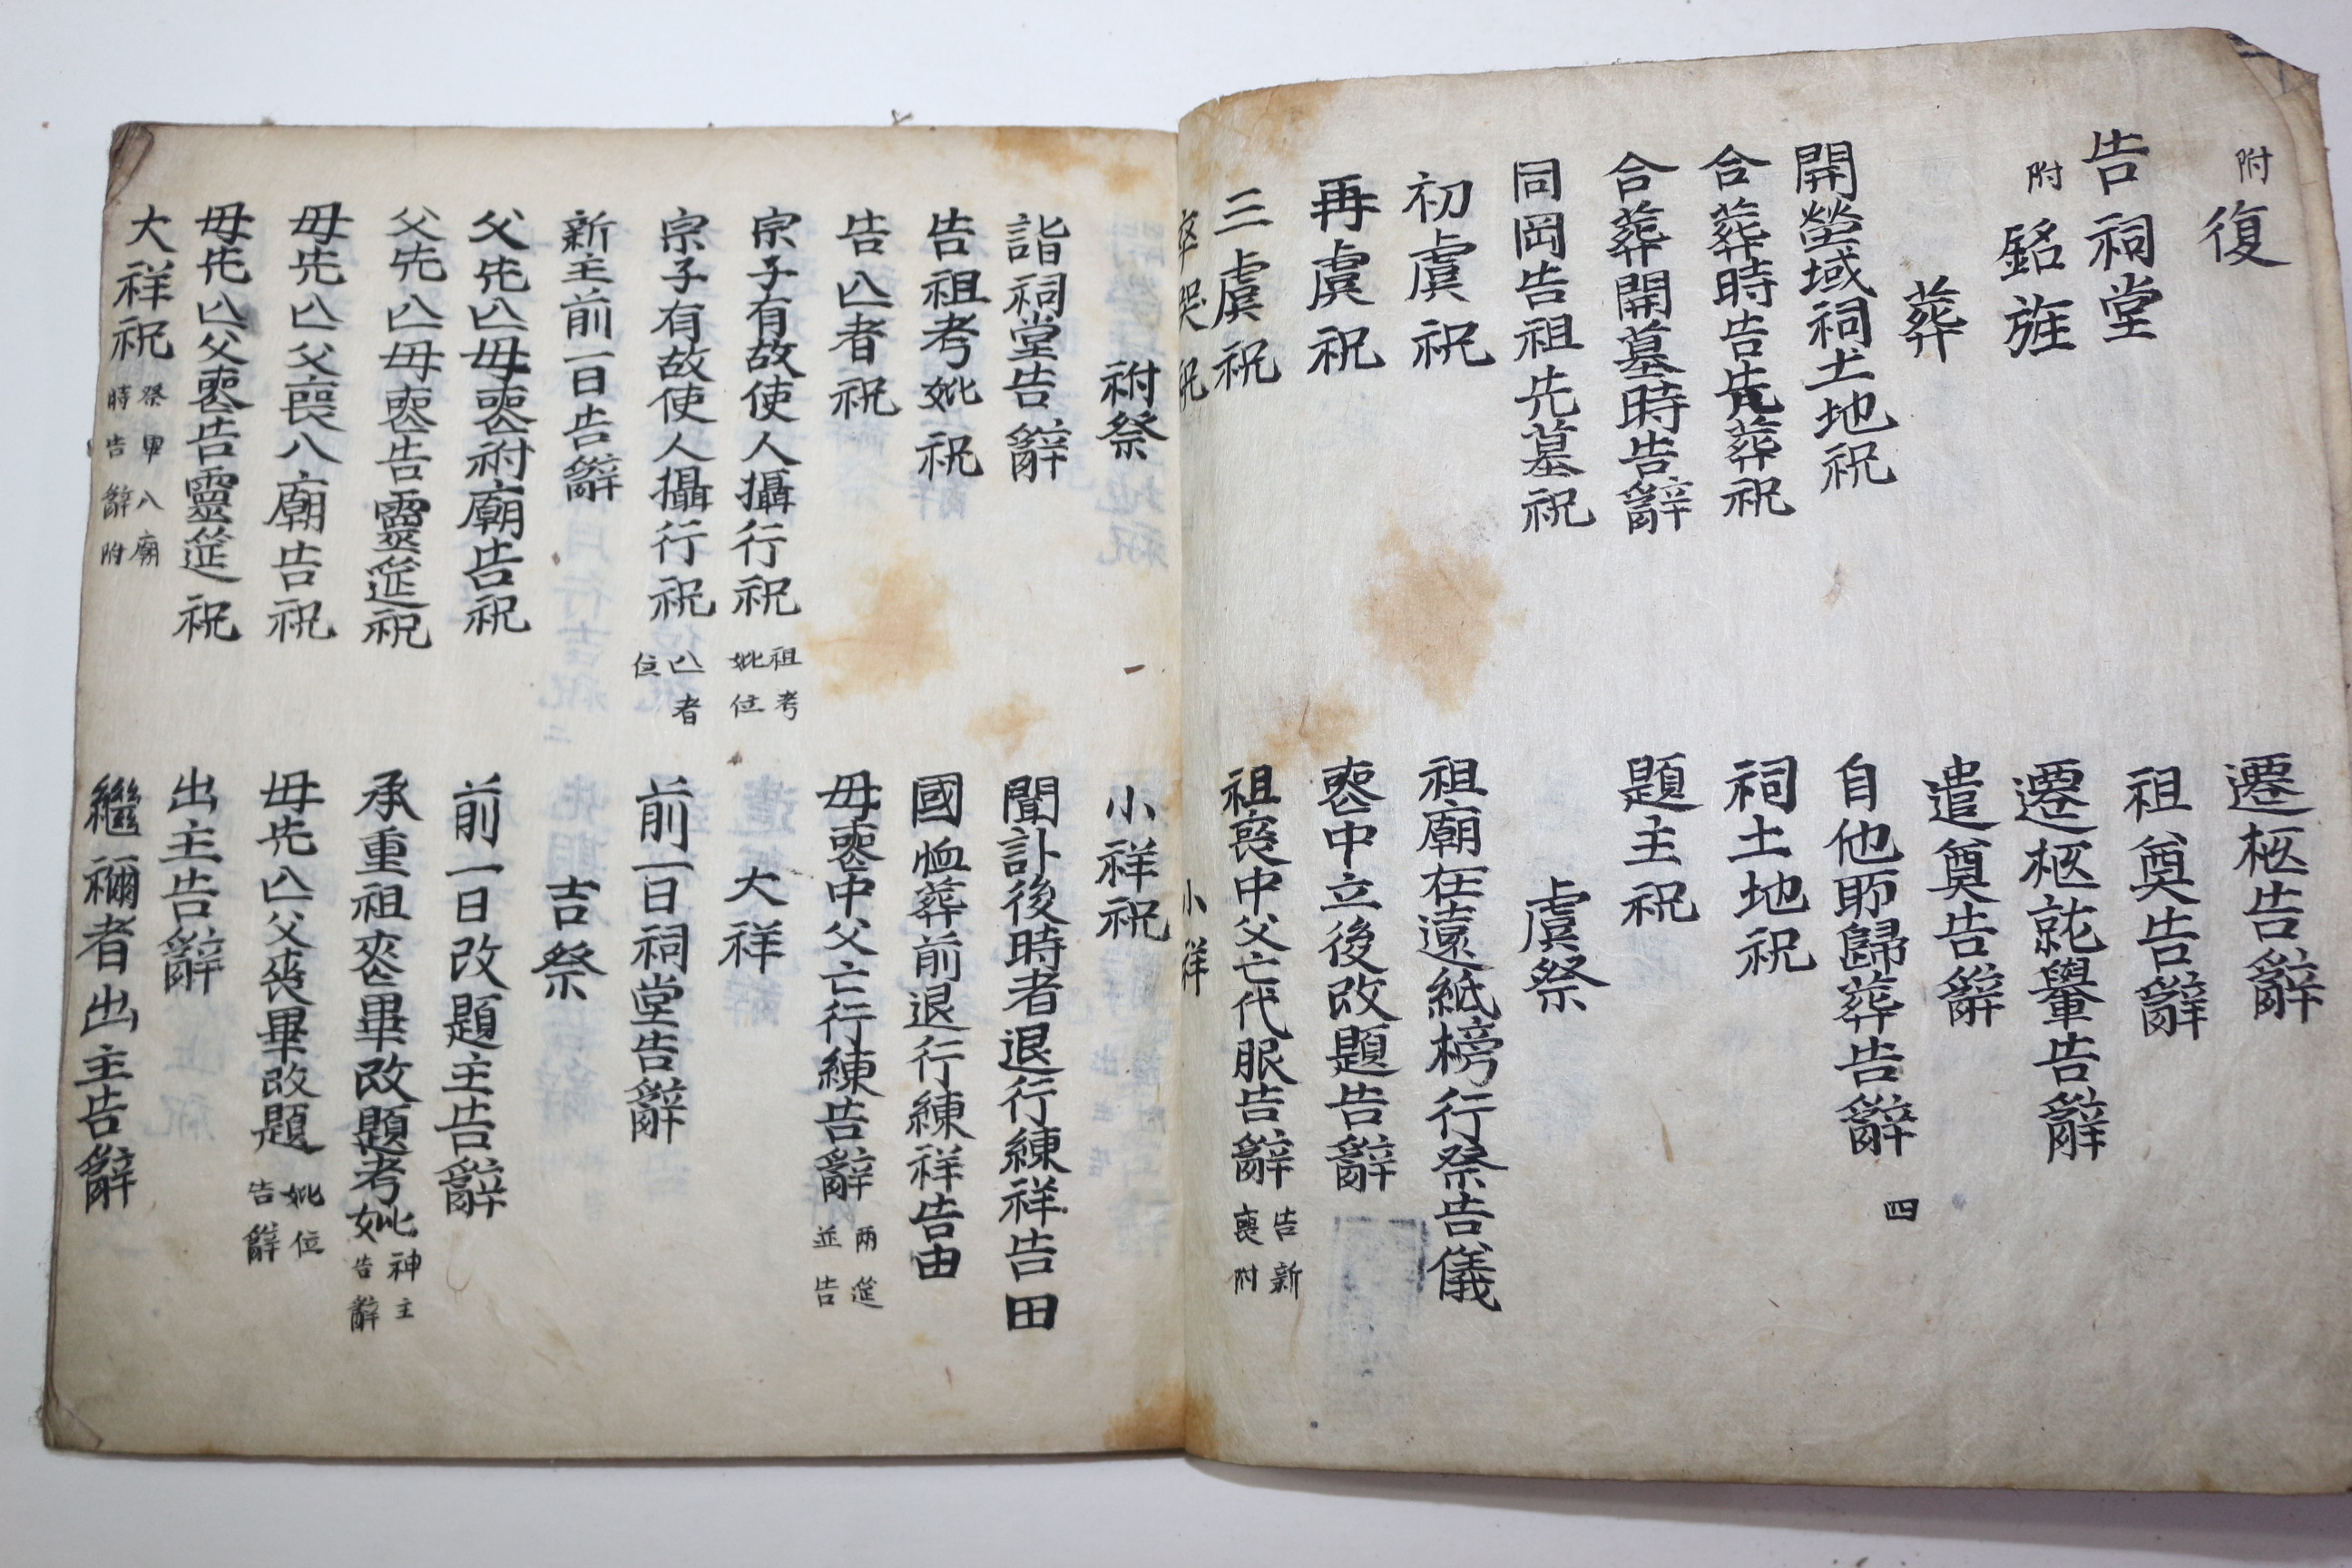 附 復
告祠堂
附 銘旌
葬
開塋域祠土地祝
合葬時告先葬祝
合葬開墓時告辭
同岡告祖先墓祝
初虞祝
再虞祝
三虞祝
卒哭祝
遷柩告辭
祖奠告辭
遷柩就轝告辭
遣奠告辭
自他所歸葬告辭 四
祠土地祝
題主祝
虞祭
祖廟在遠紙榜行祭告儀
喪中立後改題告辭
祖喪中父亡代服告辭 告新喪附
小祥
祔祭
詣祠堂告辭
告祖考妣祝
告亡者祝
宗子有故使人攝行祝 祖考妣位
宗子有故使人攝行祝 亡者位
新主前一日告辭
父先亡母喪祔廟告祝
父先亡母喪告靈筵祝
母先亡父喪入廟告祝
母先亡父喪告靈筵祝
大祥祝 祭畢入廟時告辭附
小祥祝
聞訃後時者退行練祥告田
國恤葬前退行練祥告由
母喪中父亡行練告辭 兩筵並告
大祥
前一日祠堂告辭
吉祭
前一日改題主告辭
承重祖喪畢改題考妣 神主告辭
母先亡父喪畢改題 妣位告辭
出主告辭
繼禰者出主告辭